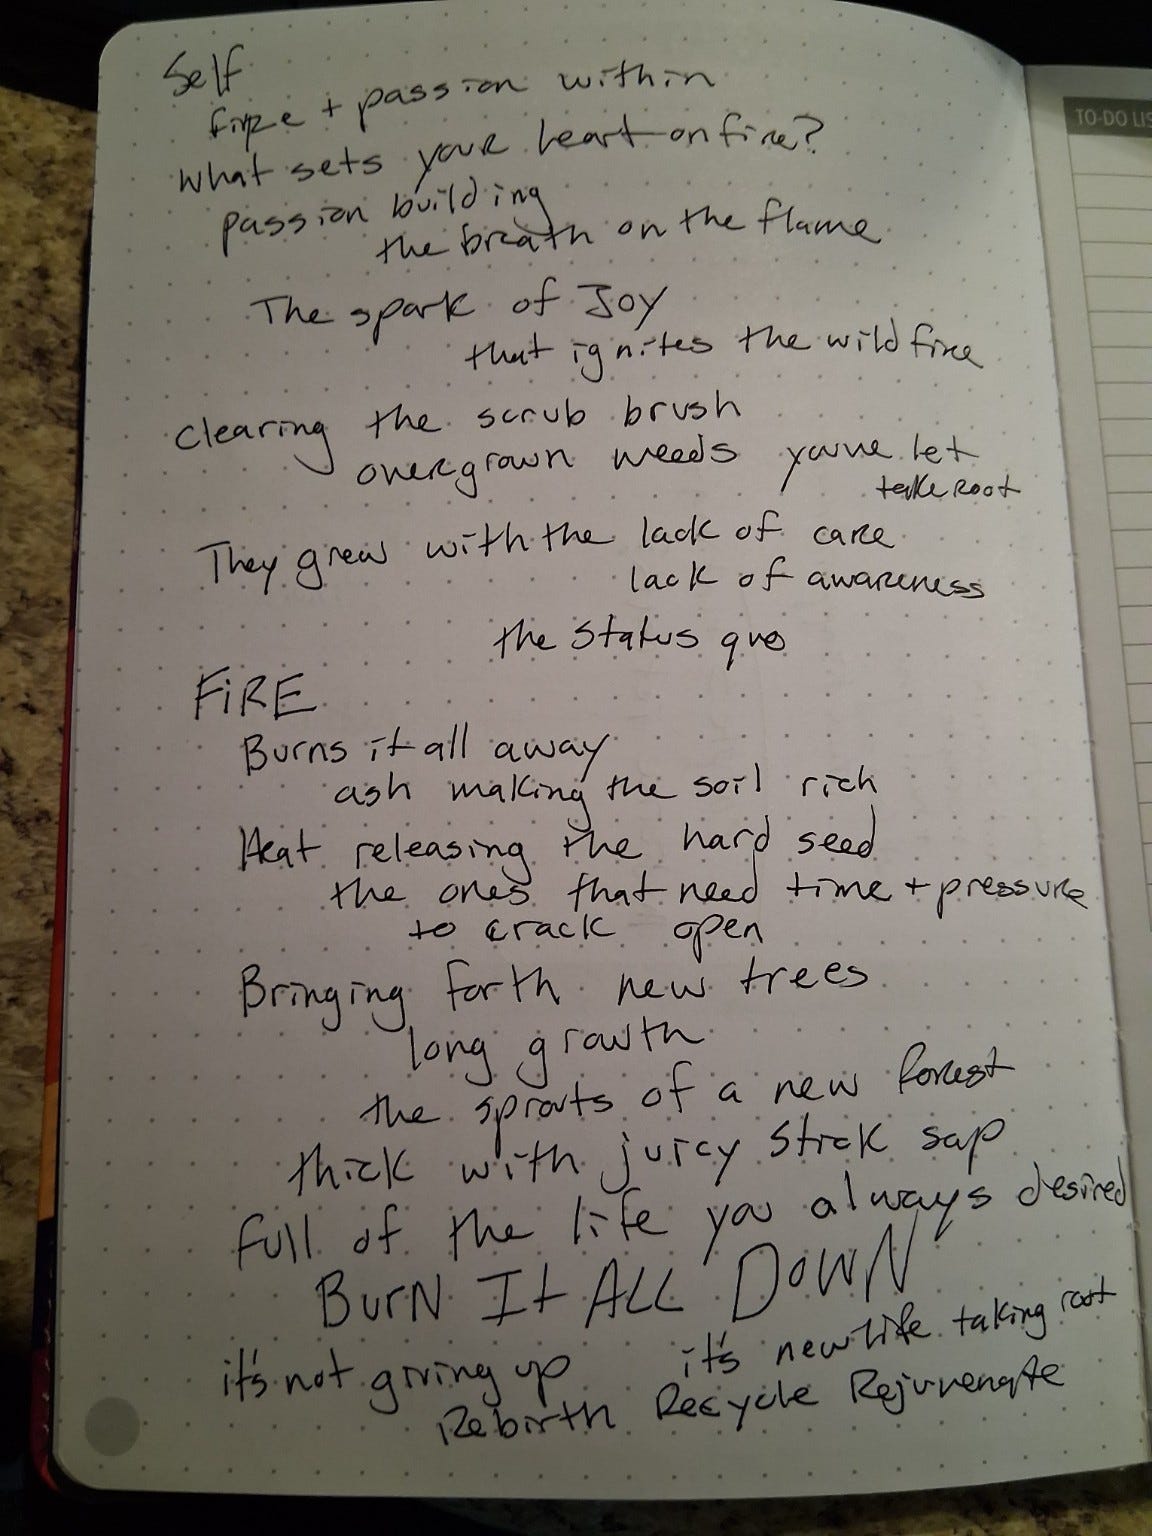 Self
fire + passion within
What sets your heart on fire?
passion building
the breath on the flame
The spark of Joy
that ignites the wild fire
Clearing the scrub brush
overgrown weeds youve let
take root
They grew with the lack of care
lack of awareness
the status quo
FiRE
Burns it all away
ash making the soil rich
Heat releasing the hard seed
the ones that need time + pressure
to crack open
Bringing forth new trees
long growth
the sprouts of a new forest
thick with juicy stick sap
full of the life you always desired
BurN It ALL DOWN
it's not giving up
it's new life taking root
Rebirth Recycle Rejuvenate
TO-DO LIS